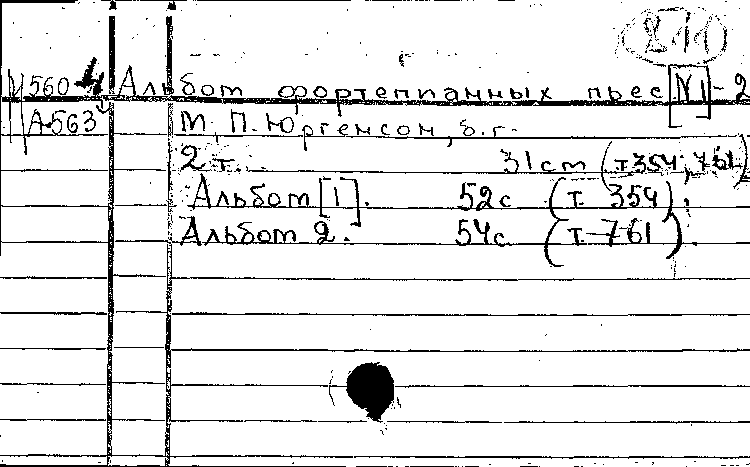 211
М560-4 Альбом фортепианных пьес [№1]-2
А-563 М, П. Юргенсом, б.г.
2 т. 31 cm (т354, 761)
Альбом [1]. 52с (т. 354).
Альбом 2. 54с. (т-761).